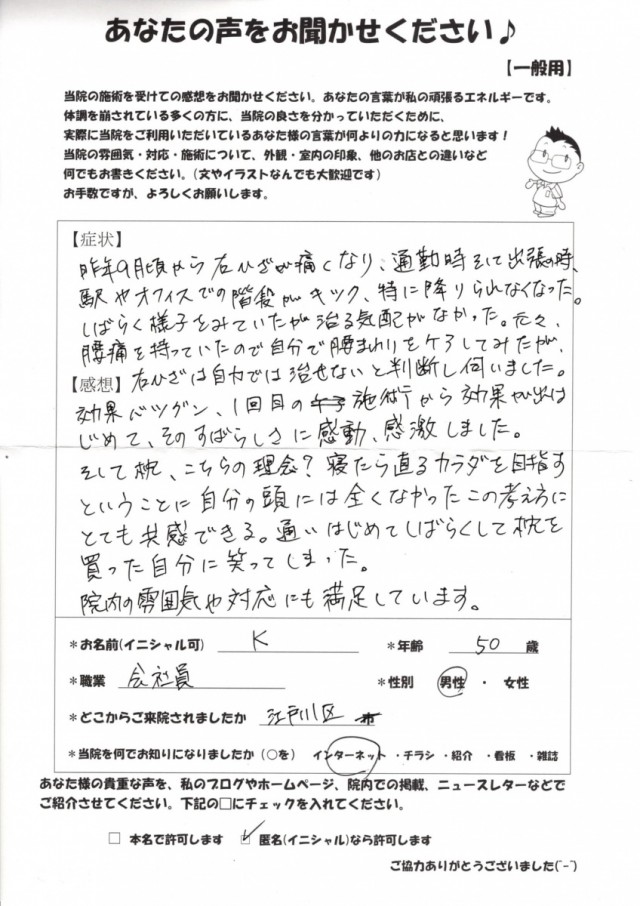 あなたの声をお聞かせください♪
【一般用】
当院の施術を受けての感想をお聞かせください。あなたの言葉が私の頑張るエネルギーです。
体調を崩されている多くの方に、当院の良さを分かっていただくために、
実際に当院をご利用いただいているあなた様の言葉が何よりの力になると思います！
当院の雰囲気・対応・施術について、外観・室内の印象、他のお店との違いなど
何でもお書きください。(文やイラストなんでも大歓迎です)
お手数ですが、よろしくお願いします。
【症状】
昨年9月頃から右ひざが痛くなり、通勤時そして出張の時、
駅やオフィスでの階段がキツク、特に降りられなくなった。
しばらく様子をみていたが治る気配がなかった。元々、
腰痛を持っていたので自分で腰まわりをケアしてみたが、
【感想】右ひざは自力では治せないと判断し伺いました。
効果バツグン、1回目の施術から効果が出は
じめて、そのすばらしさに感動、感激しました。
そして枕、こちらの理念？寝たら直るカラダを目指す
ということに自分の頭には全くなかったこの考え方に
とても共感できる。通いはじめてしばらくして枕を
買った自分に笑ってしまった。
院内の雰囲気や対応にも満足しています。
＊お名前(イニシャル可) K ＊年齢 50 歳
＊職業 会社員 ＊性別 男性 ・ 女性
＊どこからご来院されましたか 江戸川区
＊当院を何でお知りになりましたか（○を） インターネット ・チラシ ・紹介 ・看板 ・雑誌
あなた様の貴重な声を、私のブログやホームページ、院内での掲載、ニュースレターなどで
ご紹介させてください。下記の□にチェックを入れてください。
□ 本名で許可します ☑ 匿名(イニシャル)なら許可します
ご協力ありがとうございました(^-^)